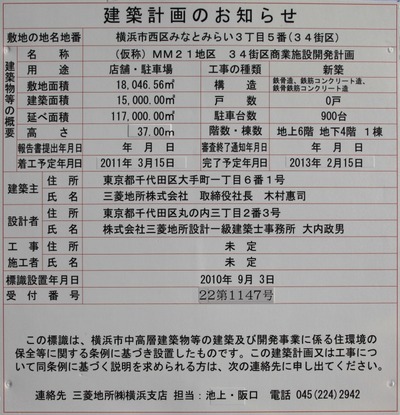 建築計画のお知らせ
敷地の地名地番 横浜市西区みなとみらい3丁目5番(34街区)
建築物等の概要
名称 (仮称)MM21地区 34街区商業施設開発計画
用途 店舗・駐車場 工事の種類 新築
敷地面積 18,046.56㎡ 構造 鉄骨造、鉄筋コンクリート造、鉄骨鉄筋コンクリート造
建築面積 15,000.00㎡ 戸数 0戸
延べ面積 117,000.00㎡ 駐車台数 900台
高さ 37.00m 階数・棟数 地上6階 地下4階 1棟
報告書提出年月日 年 月 日 審査終了通知年月日 年 月 日
着工予定年月日 2011年 3月15日 完了予定年月日 2013年 2月15日
建築主 住所 東京都千代田区大手町一丁目6番1号
氏名 三菱地所株式会社 取締役社長 木村惠司
設計者 住所 東京都千代田区丸の内三丁目2番3号
氏名 株式会社三菱地所設計一級建築士事務所 大内政男
工事施工者 住所 未定
氏名 未定
標識設置年月日 2010年 9月 3日
受付番号 22第1147号
この標識は、横浜市中高層建築物等の建築及び開発事業に係る住環境の
保全等に関する条例に基づき設置したものです。この建築計画又は工事につ
いて同条例に基づく説明を求められる方は、次の連絡先に申し出てください。
連絡先 三菱地所㈱横浜支店 担当:池上・阪口 電話 045(224)2942